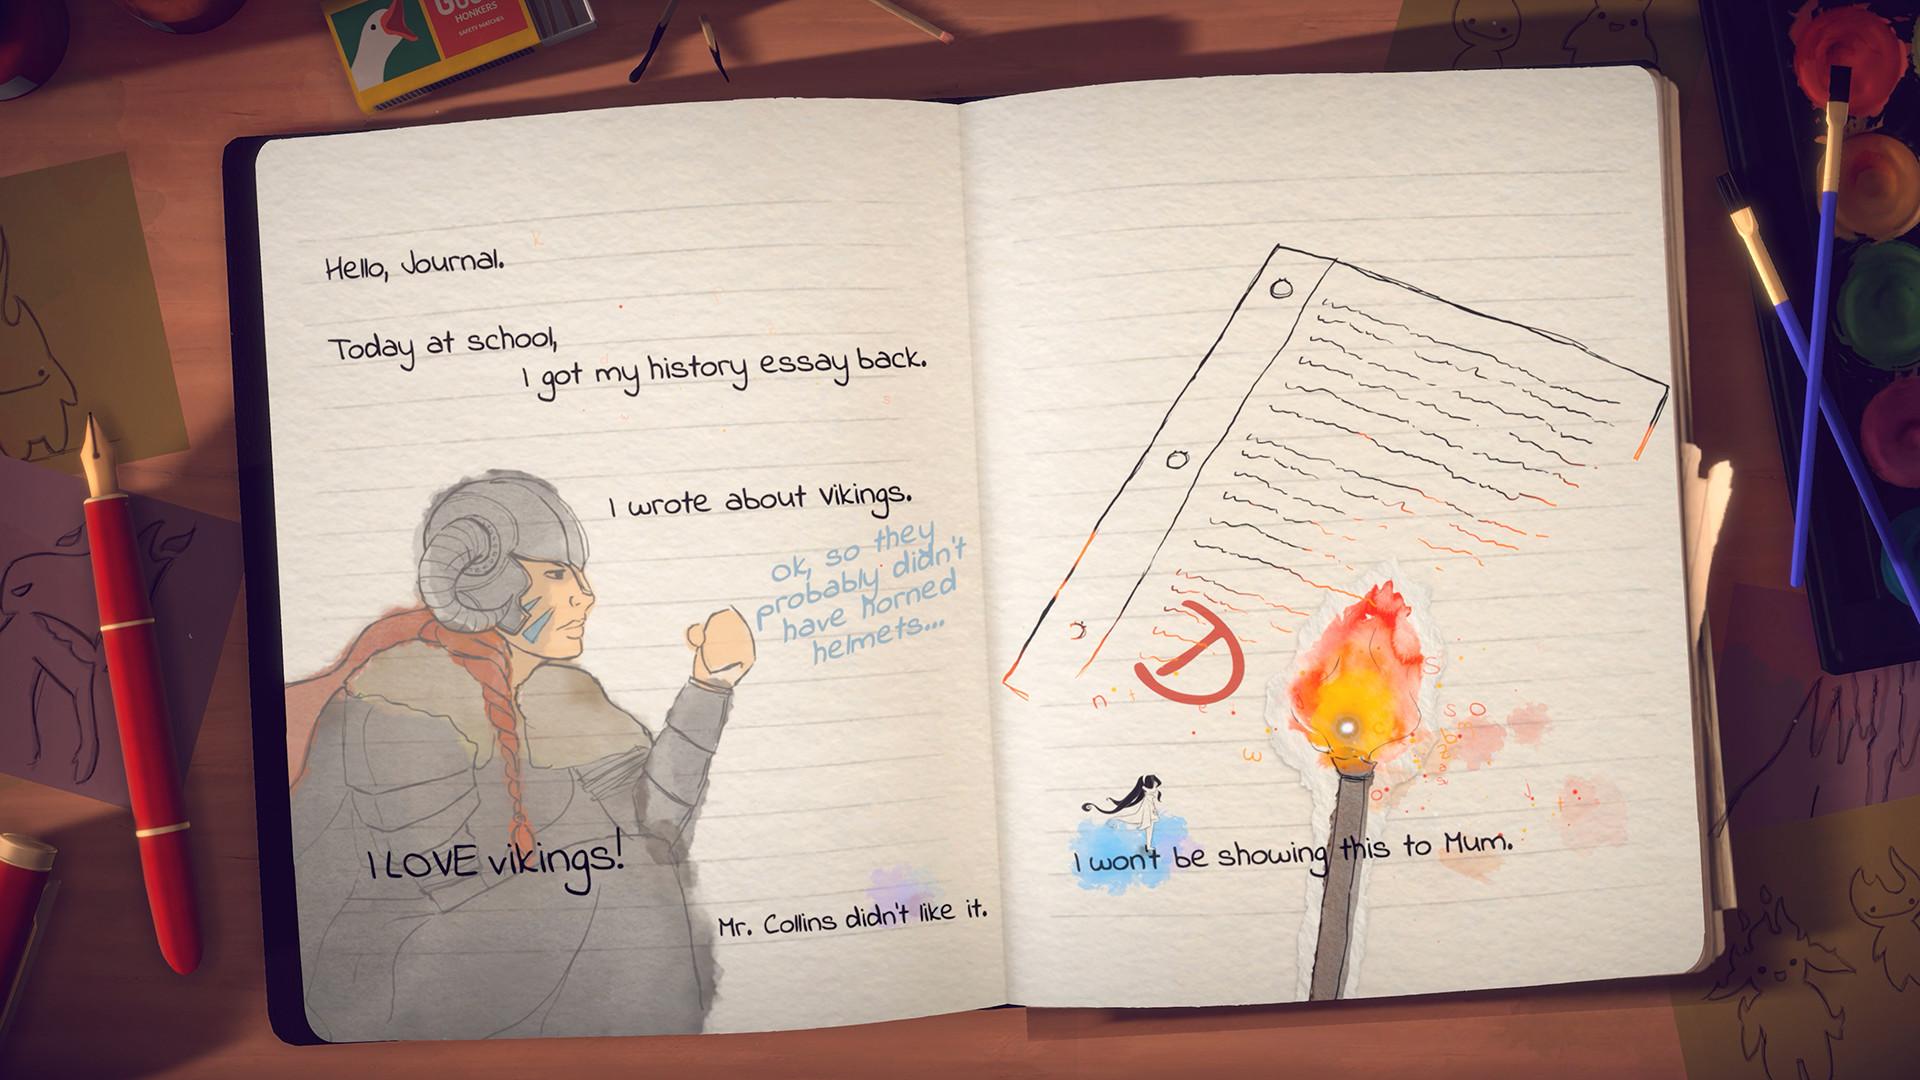 HONKERS
SAFETY MATCHES
Hello, Journal.
Today at school,
I got my history essay back.
I wrote about Vikings.
ok, so they
probably didn't
have horned
helmets...
I LOVE vikings!
Mr. Collins didn't like it.
D
I won't be showing this to Mum.